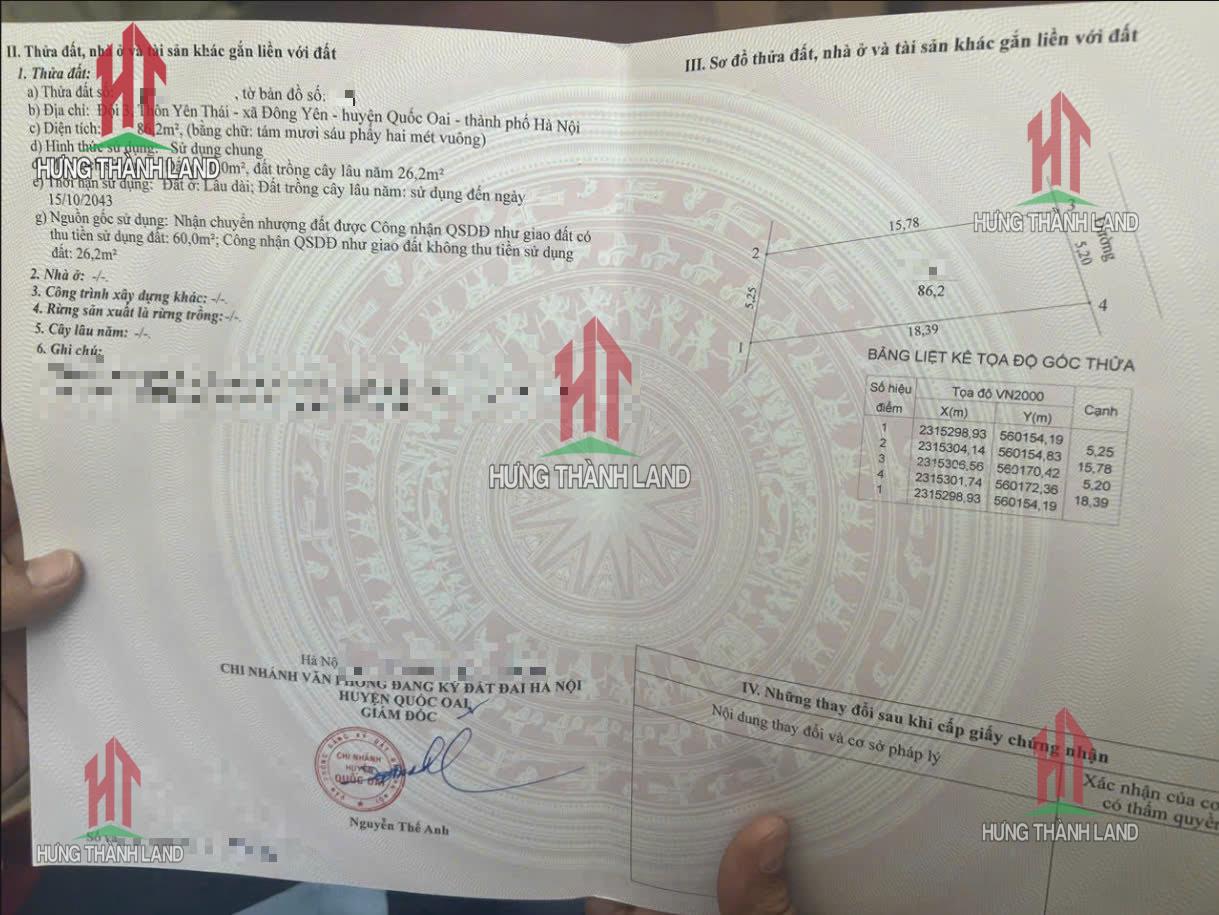 II. Thửa đất, nhà ở và tài sản khác gắn liền với đất
1. Thửa đất:
a) Thửa đất số: , tờ bản đồ số:
b) Địa chỉ: Đội 3, Thôn Yên Thái - xã Đông Yên - huyện Quốc Oai - thành phố Hà Nội
c) Diện tích: 86,2m², (bằng chữ: tám mươi sáu phẩy hai mét vuông)
d) Hình thức sử dụng: Sử dụng chung
0m², đất trồng cây lâu năm 26,2m²
e) Thời hạn sử dụng: Đất ở: Lâu dài; Đất trồng cây lâu năm: sử dụng đến ngày
15/10/2043
g) Nguồn gốc sử dụng: Nhận chuyển nhượng đất được Công nhận QSDĐ như giao đất có
thu tiền sử dụng đất: 60,0m²; Công nhận QSDĐ như giao đất không thu tiền sử dụng
đất: 26,2m²
2. Nhà ở: -/-.
3. Công trình xây dựng khác: -/-.
4. Rừng sản xuất là rừng trồng: -/-.
5. Cây lâu năm: -/-.
6. Ghi chú:
Hà Nộ
CHI NHÁNH VĂN PHÒNG ĐĂNG KÝ ĐẤT ĐAI HÀ NỘI
HUYỆN QUỐC OAI
GIÁM ĐỐC
CHI NHÁNH
HUYỆN
QUỐC OAI
Nguyễn Thế Anh
III. Sơ đồ thửa đất, nhà ở và tài sản khác gắn liền với đất
15,78
2
3
Đường
5,20
5,25
86,2
4
18,39
1
BẢNG LIỆT KÊ TỌA ĐỘ GÓC THỬA
Số hiệu điểm Tọa độ VN2000 Cạnh
X(m) Y(m)
1 2315298,93 560154,19
5,25
2 2315304,14 560154,83
15,78
3 2315306,56 560170,42
5,20
4 2315301,74 560172,36
18,39
1 2315298,93 560154,19
IV. Những thay đổi sau khi cấp giấy chứng nhận
Nội dung thay đổi và cơ sở pháp lý
Xác nhận của cơ
có thẩm quyền
HƯNG THÀNH LAND
HƯNG THÀNH LAND
HƯNG THÀNH LAND
HƯNG THÀNH LAND
HƯNG THÀNH LAND